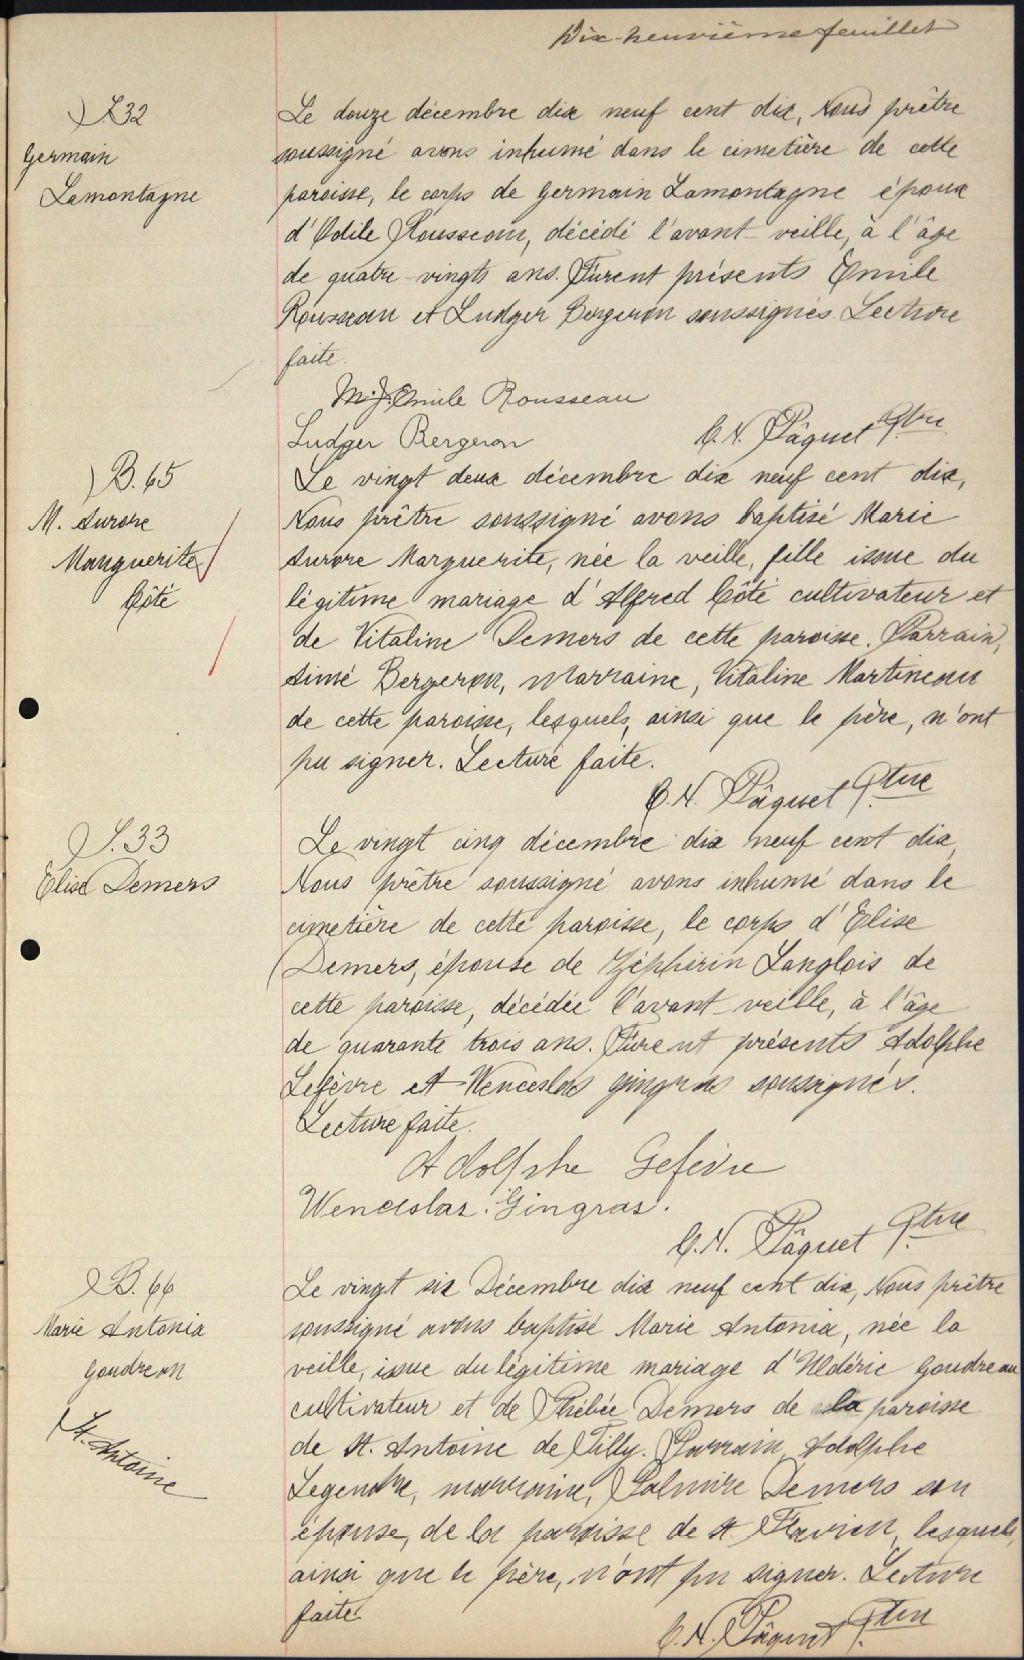 Dix-neuvième feuillet
S. 32
Germain
Lamontagne
Le douze décembre dix neuf cent dix, Nous prêtre
soussigné avons inhumé dans le cimetière de cette
paroisse, le corps de Germain Lamontagne époux
d'Odile Rousseau, décédé l'avant-veille, à l'âge
de quatre-vingts ans. Furent présents Emile
Rousseau et Ludger Bergeron soussignés. Lecture
faite.
M. J. Emile Rousseau
Ludger Bergeron
C. N. Pâquet Ptre
B. 65
M. Aurore
Marguerite
Côté
Le vingt deux décembre dix neuf cent dix,
Nous prêtre soussigné avons baptisé Marie
Aurore Marguerite, née la veille, fille issue du
légitime mariage d'Alfred Côté cultivateur et
de Vitaline Demers de cette paroisse. Parrain,
Aimé Bergeron, marraine, Vitaline Martineau
de cette paroisse, lesquels, ainsi que le père, n'ont
pu signer. Lecture faite.
C. N. Pâquet Ptre
S. 33
Elise Demers
Le vingt cinq décembre dix neuf cent dix,
Nous prêtre soussigné avons inhumé dans le
cimetière de cette paroisse, le corps d'Elise
Demers, épouse de Zéphirin Langlois de
cette paroisse, décédée l'avant-veille, à l'âge
de quarante trois ans. Furent présents Adolphe
Lefèvre et Wenceslas Gingras soussignés.
Lecture faite.
Adolphe Lefèvre
Wenceslas Gingras.
C. N. Pâquet Ptre
B. 66
Marie Antonia
Goudreau
St. Antoine
Le vingt six Décembre dix neuf cent dix, Nous prêtre
soussigné avons baptisé Marie Antonia, née la
veille, issue du légitime mariage d'Uldéric Goudreau
cultivateur et de Phébée Demers de la paroisse
de St. Antoine de Tilly. Parrain, Adolphe
Legendre, marraine, Palmire Demers son
épouse, de la paroisse de St Flavien, lesquels,
ainsi que le père, n'ont pu signer. Lecture
faite.
C. N. Pâquet Ptre